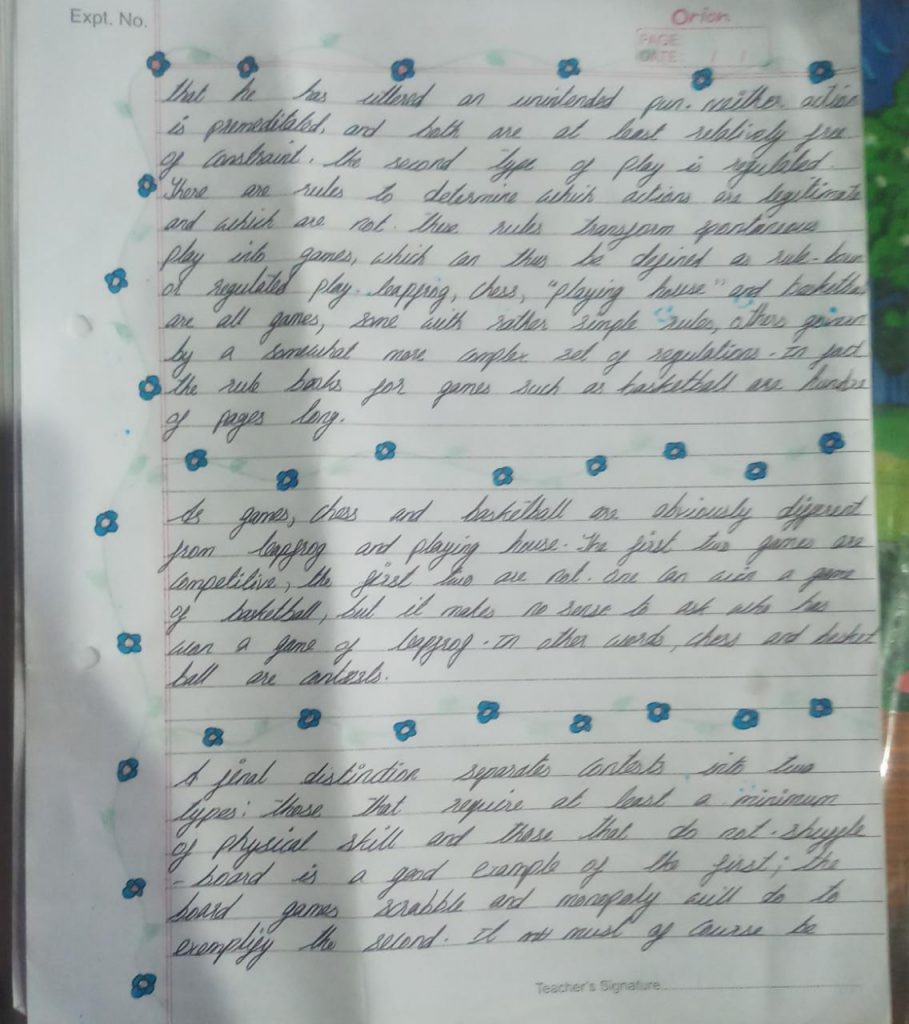 Expt. No.
Orion
PAGE:
DATE: / /
that he has uttered an unintended pun. neither action
is premeditated, and both are at least relatively free
of constraint. the second type of play is regulated.
There are rules to determine which actions are legitimate
and which are not. these rules transform spontaneous
play into games, which can thus be defined as rule-boun
or regulated play. leapfrog, chess, "playing house" and basketba
are all games, some with rather simple rules, others govern
by a somewhat more complex set of regulations. In fact
the rule books for games such as basketball are hundre
of pages long.
As games, chess and basketball are obviously different
from leapfrog and playing house. The first two games are
competitive, the first two are not. one can win a game
of basketball, but it makes no sense to ask who has
won a game of leapfrog. In other words, chess and basket
ball are contests.
A final distinction separates contests into two
types: those that require at least a minimum
of physical skill and those that do not. shuffle
-board is a good example of the first; the
board games scrabble and monopoly will do to
exemplify the second. It must of course be
Teacher's Signature